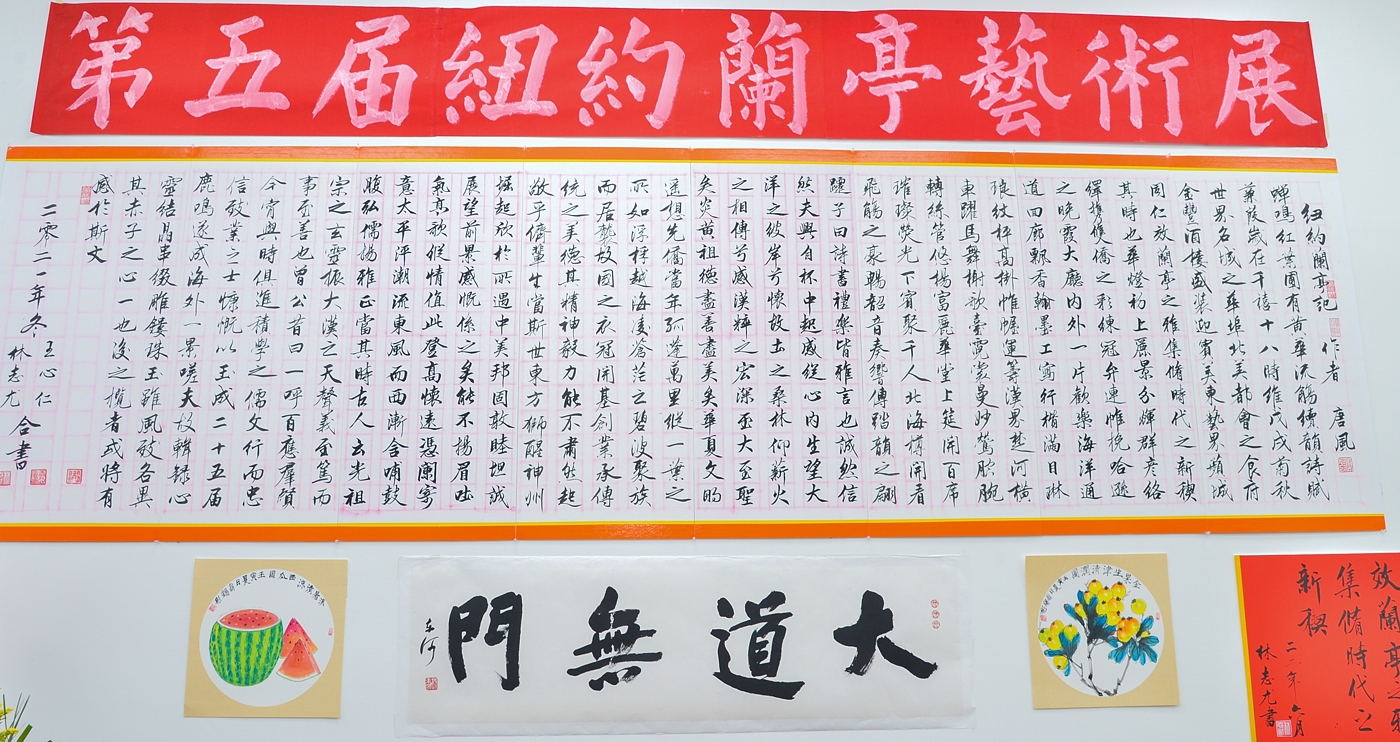 第五届紐約蘭亭藝術展
紐約蘭亭記 作者 唐風
蟬鳴紅葉園有黃華流觴續韻詩賦
蒹葭歲在千禧十八時維戊戌菊秋
世界名城之華埠北美都會之食府
金豐酒樓盛裝迎賓美東藝界蘋城
同仁效蘭亭之雅集脩時代之新禊
其時也華燈初上屬景分輝群彥絡
繹攜雙僑之彩練冠弁連帷挽哈遜
之晚霞大廳內外一片歡樂海洋通
道回廊飄香翰墨工寫行楷滿目琳
琅紋枰高掛帷幄運籌漢界楚河橫
東躍馬舞榭歌臺霓裳曼妙鶯腔腕
轉絲管悠揚富麗華堂上筵開百席
璀璨熒光下賓聚千人北海樽開看
飛觴之豪暢韶音奏響傳踏韻之翩
躚子曰詩書禮樂皆雅言也誠然信
然夫興自杯中起感從心內生望大
洋之彼岸兮懷故土之桑林仰薪火
之相傳兮感漢粹之宏深至大至聖
矣炎黃祖德盡善盡美矣華夏文昀
遥想先僑當年孤蓬萬里縱一葉之
所如浮桴越海凌蒼茫之碧波聚族
而居故國之衣冠開基創業承傳
統之美德其精神毅力能不肅然起
敬乎儕輩生當斯世東方獅醒神州
堀起欣於所遇中美邦固敦睦坦誠
展望前景感慨係之矣能不揚眉吐
氣高歌縱情值此登高懷遠憑闌寄
意太平洋潮流東風而西漸含哺鼓
腹弘儒揚雅正當其時古人云光祖
宗之玄靈振大漢之天聲義至篤而
事至善也曾公昔曰一呼百應羣賢
今宵與時俱進積學之儒文行而忠
信敬業之士慷慨以玉成二十五届
鹿鳴遂成海外一景嗟夫故輯錄心
靈結晶串綴雕鏤珠玉雖風致各異
其赤子之心一也後之攬者或將有
感於斯文
二零二一年冬 王心仁 林志尤 合書
金果生津清潤圖
大道無門
清涼西瓜圖壬寅夏日
效蘭亭之
集脩時代之
新禊
年六月
林志尤書